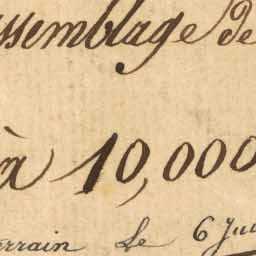 ssemblage de
à 10,000
errain Le 6 Jui